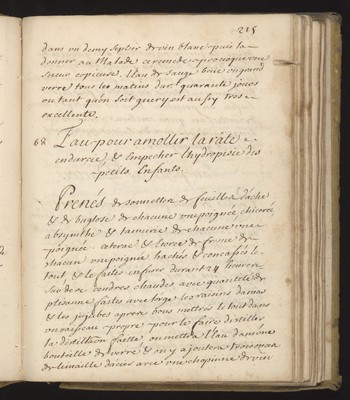 215
dans un demy septier de vin blanc puis la
donner au malade ce remede provoque une
sueur copieuse. L'eau de sauge beüe un grand
verre tous les matins durant quarante jours
ou tant qu'on soit guery est aussy tres
excellente.
68 L'au pour amollir la râte
endurcie, & empecher l'hydropisie des
petits Enfants.
Prenés de sommettes & feuilles d'ache
& de buglose de chacune une poignée, chicorée
absynthe & tamaris de chacune une
poignée. ceterac & Ecorce de frene de
chacun une poignée hachés & concassés le
tout & le faites infuser durant 24 heures
sur des cendres chaudes avec quantité de
ptisanne faites avec l'orge les raisins damas
& les jujubes apres vous mettrés le tout dans
un vaisseau propre pour le faire distiller
la distillation faitte on mettra l'eau dans une
bouteille de verre & on y ajoutera trois onces
de limaille d'acier avec une chopinne de vin